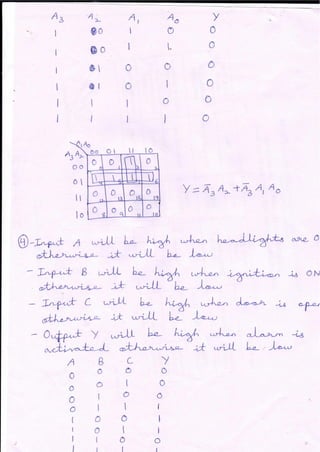 A3 A2 A1 A0 Y
1 0 1 0 0
1 0 1 1 0
1 1 0 0 0
1 1 0 1 0
1 1 1 0 0
1 1 1 1 0
A1A0
A3A2 00 01 11 10
00 0 0 1 0
01 1 1 1 1
11 0 0 0 0
10 0 0 0 0
Y = A̅3 A2 + A̅3 A1 A0
④ - Input A will be high when headlights are O
otherwise it will be low
- Input B will be high when ignition is ON
otherwise it will be low
- Input C will be high when door is ope
otherwise it will be low
- Output Y will be high when alarm is
activated otherwise it will be low
A B C Y
0 0 0 0
0 0 1 0
0 1 0 0
0 1 1 1
1 0 0 1
1 0 1 1
1 1 0 0
1 1 1 1